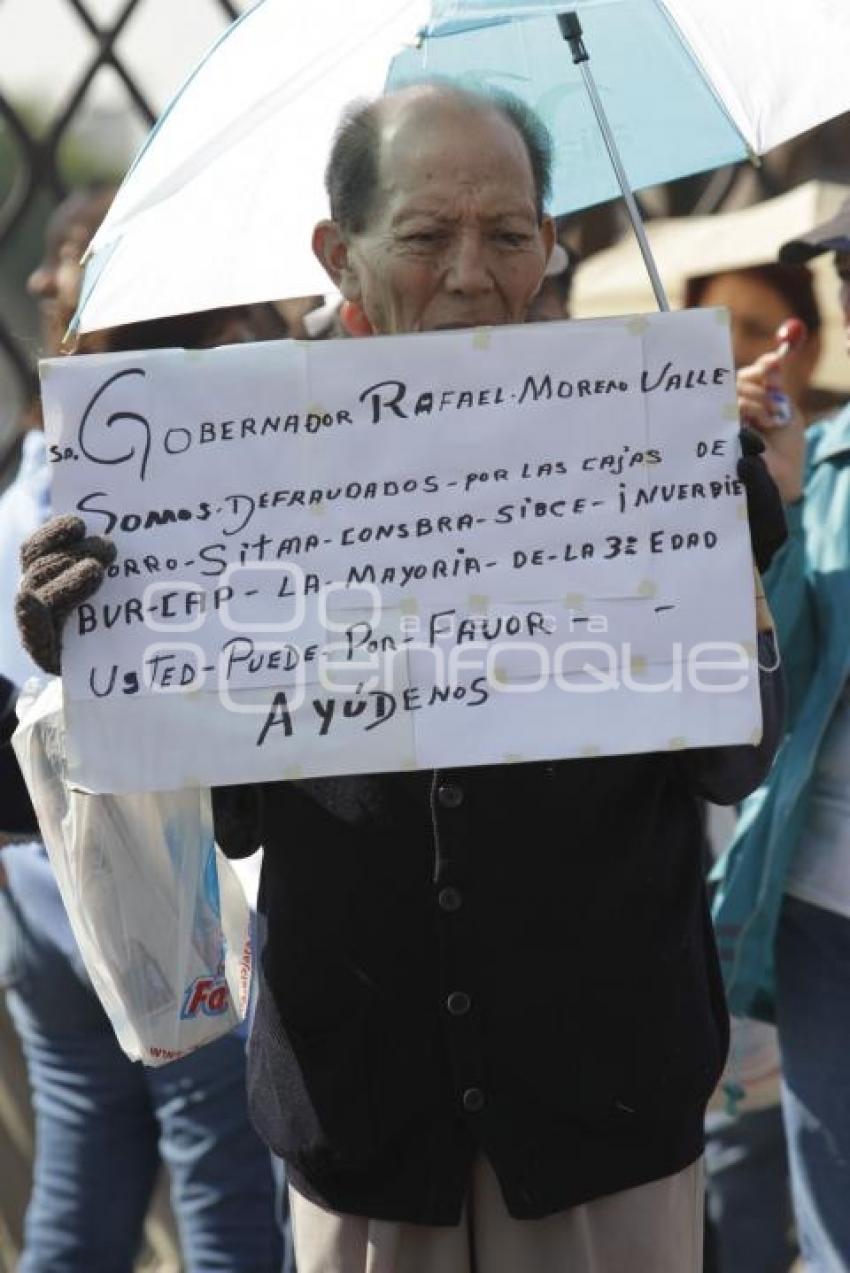 SR. GOBERNADOR RAFAEL. MORENO VALLE
SOMOS. DEFRAUDADOS - POR LAS CAJAS DE
ORRO - SITMA - CONSBRA - SIBCE - INVERBIE
BUR - CAP - LA MAYORIA - DE - LA 3E EDAD
USTED - PUEDE - POR - FAVOR - -
AYÚDENOS
agencia
enfoque
Fa